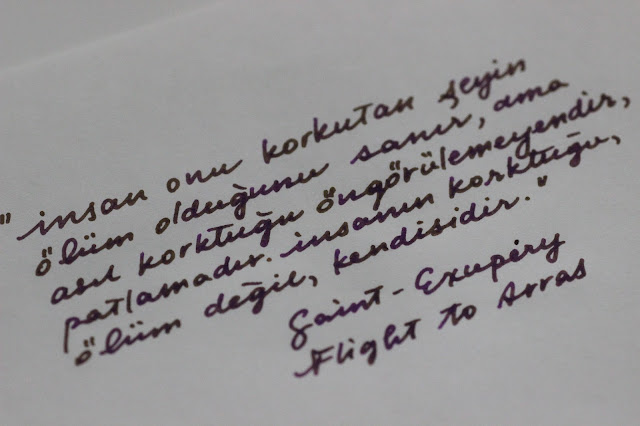 "insan onu korkutan şeyin
ölüm olduğunu sanır, ama
asıl korktuğu öngörülemeyendir,
patlamadır. insanın korktuğu,
ölüm değil, kendisidir."
Saint-Exupéry
Flight to Arras